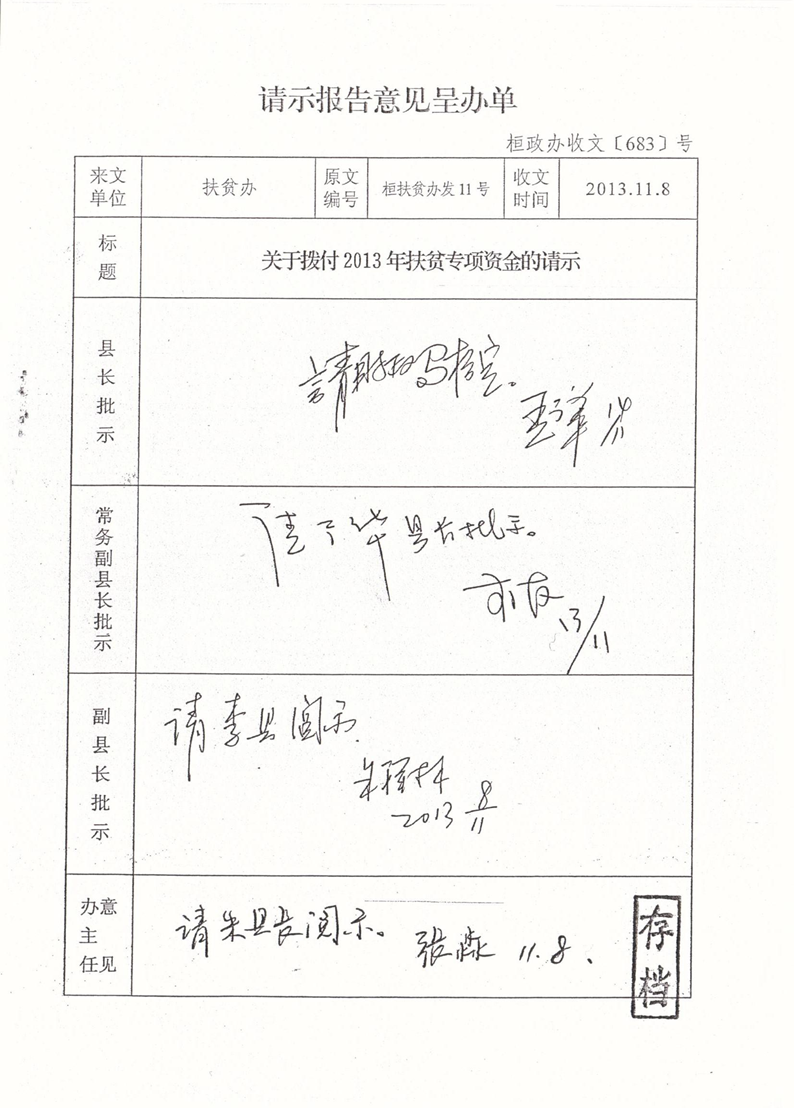 请示报告意见呈办单
桓政办收文〔683〕号
来文单位 扶贫办 原文编号 桓扶贫办发11号 收文时间 2013.11.8
标题 关于拨付2013年扶贫专项资金的请示
县长批示
常务副县长批示
县长批示。
13/11
副县长批示
请李县阅示
2013 8/11
办主任意见
请朱县长阅示。 张淼 11.8.
存档